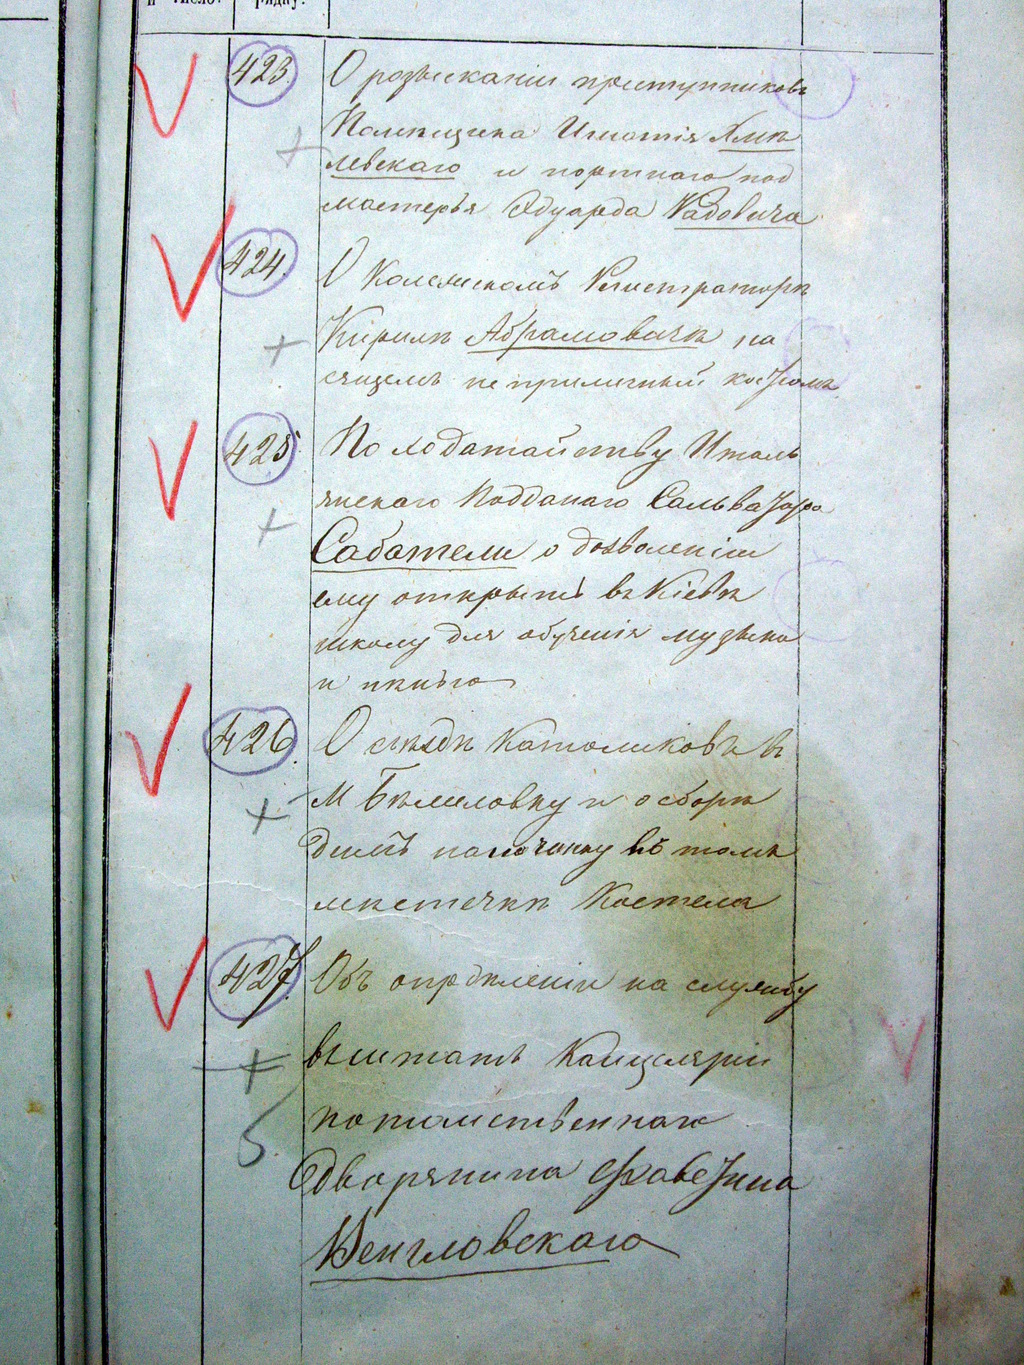 и число.
рядку.
423. О розысканіи преступниковъ
Помѣщика Игнатія Хмѣ
левскаго и портнаго под
мастерья Эдуарда Радовича
424. О Колежскомъ Регистраторѣ
Кирилѣ Абрамовичѣ, но
сящемъ не приличный костюмъ
425 По ходатайству Италь
янскаго Подданаго Сальватора
Сабатели о дозволеніи
ему открыть въ Кіевѣ
школу для обученія музыке
и пѣнію
426. О съездѣ Католиковъ въ
М Бѣлиловку и о сборѣ
денегъ на починку въ томъ
мѣстечкѣ Костела
427. Объ опрѣделеніи на службу
въ штатъ Канцеляріи
потомственнаго
Дворянина Фавстина
Венгловскаго